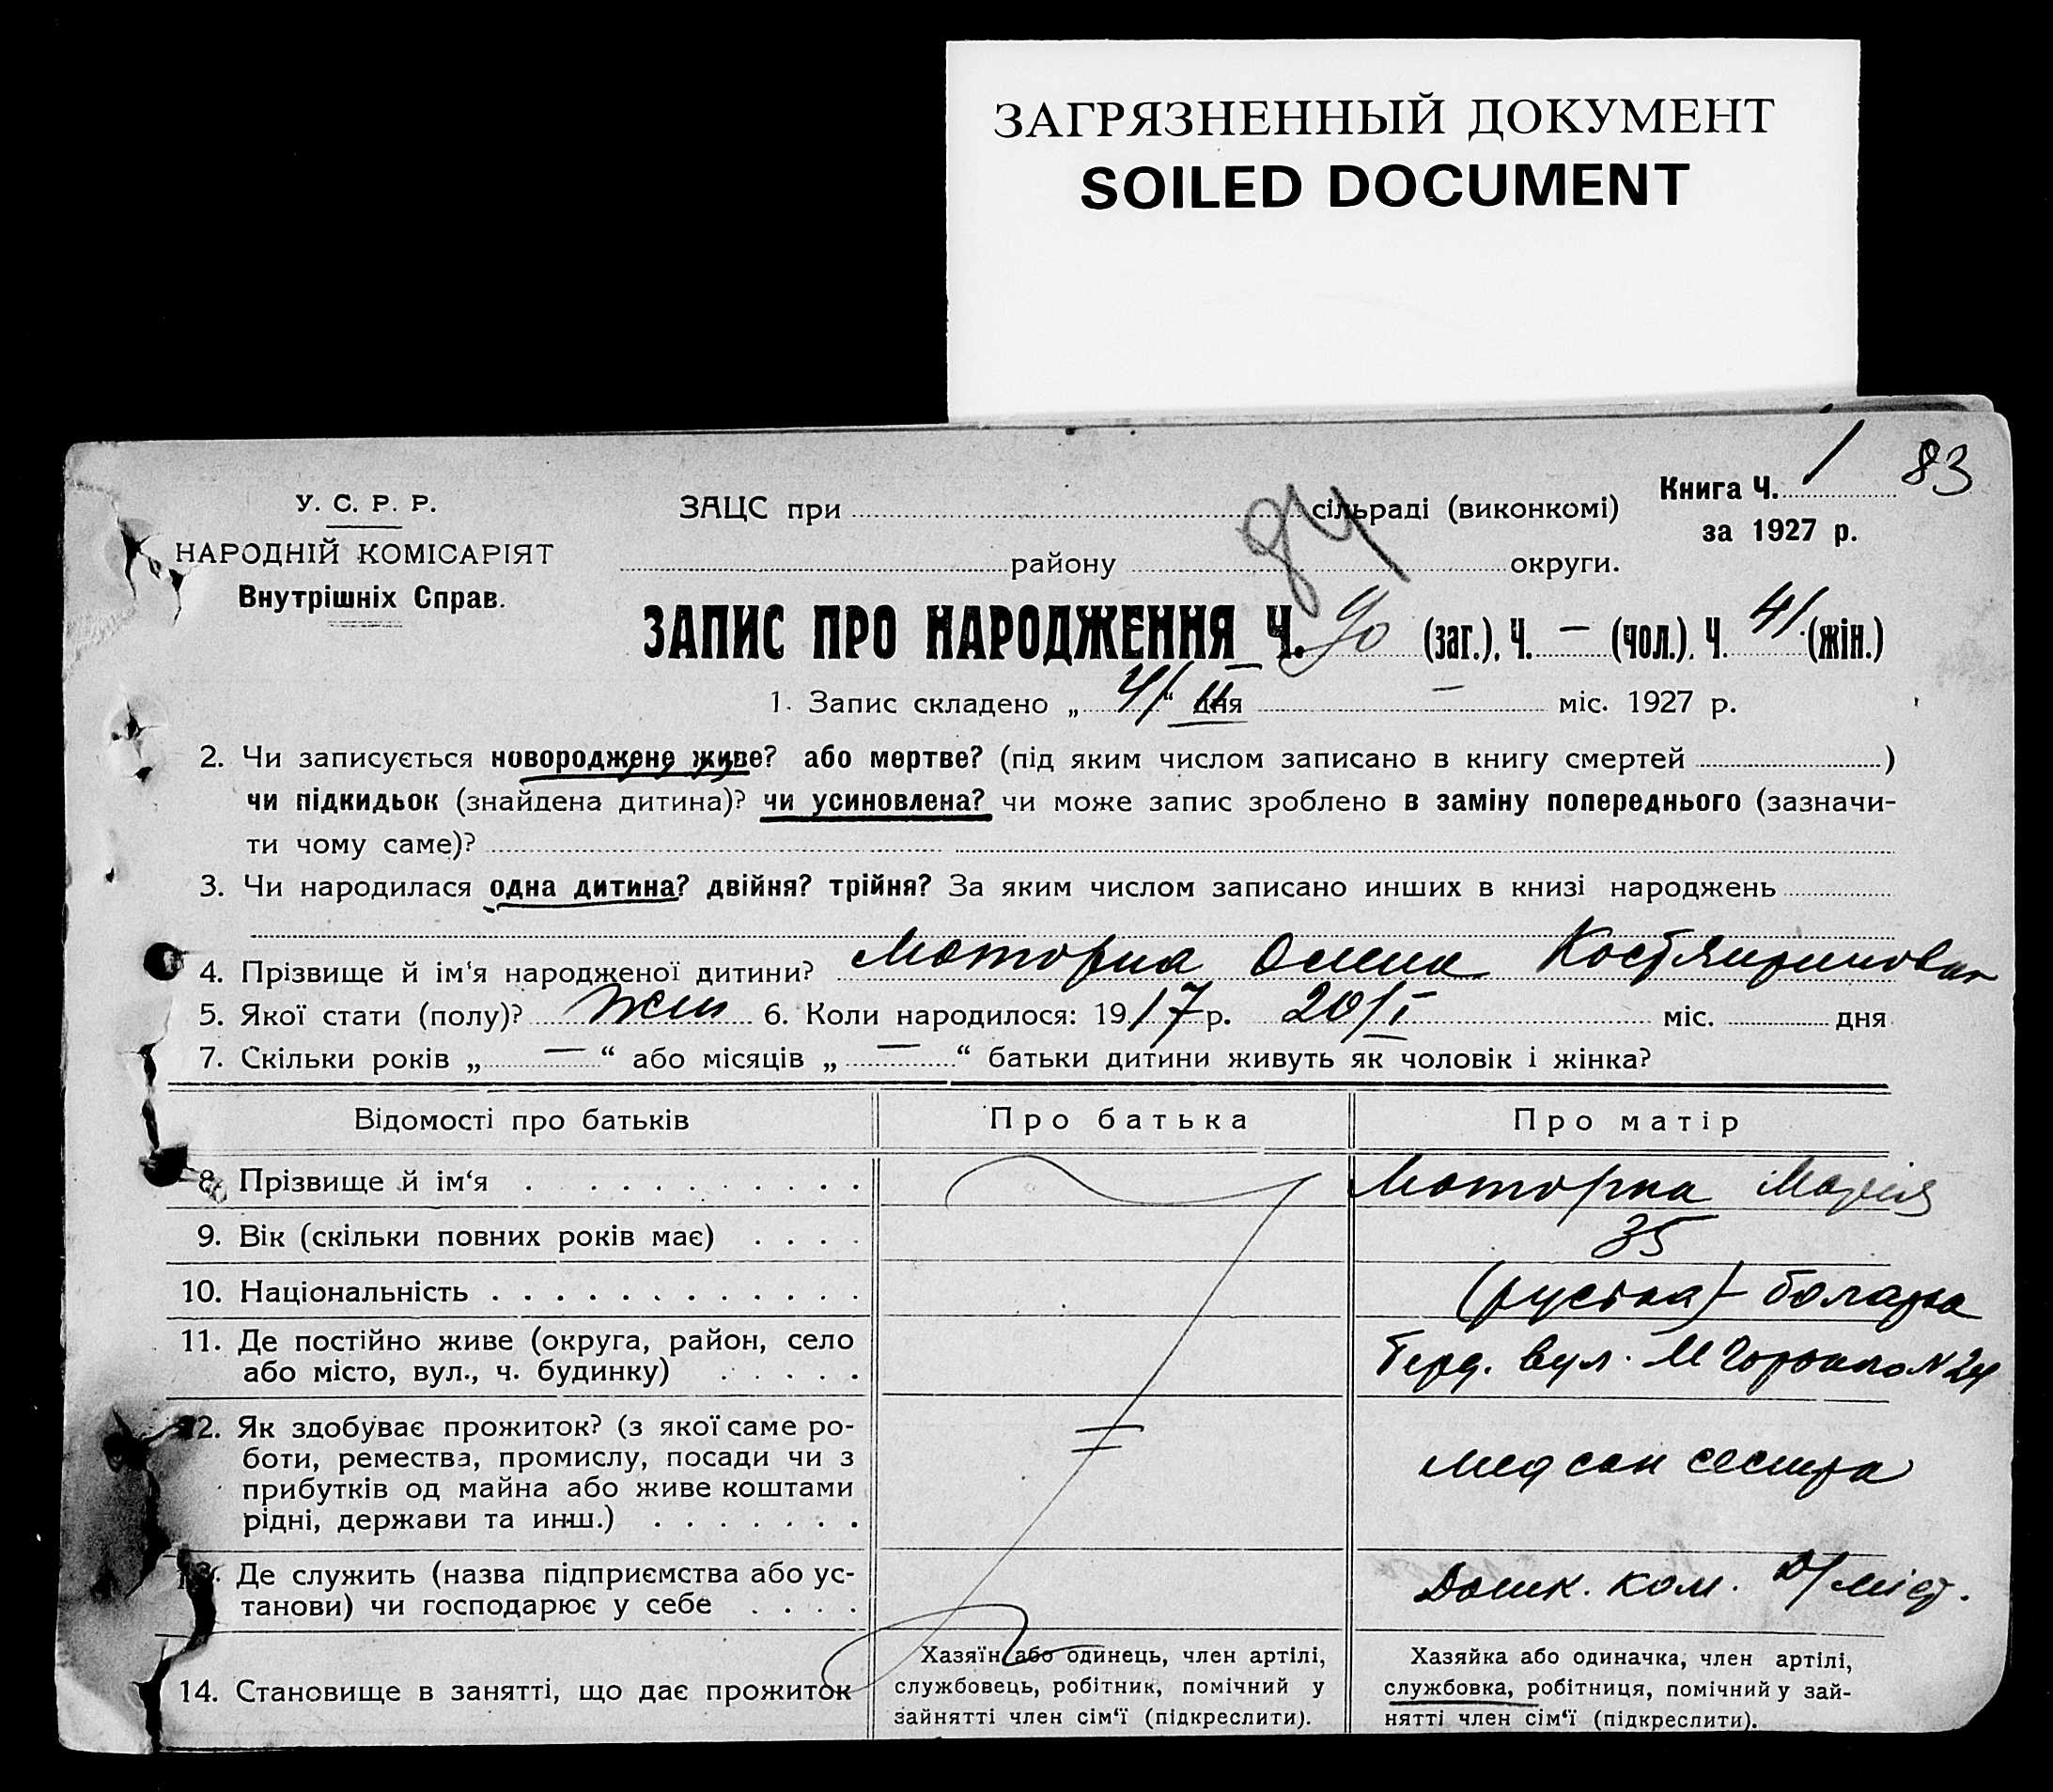 ЗАГРЯЗНЕННЫЙ ДОКУМЕНТ
SOILED DOCUMENT
83
Книга Ч. 1
за 1927 р.
У. С. Р. Р.
НАРОДНІЙ КОМІСАРІЯТ
Внутрішніх Справ.
ЗАЦС при сільраді (виконкомі)
району округи.
84
ЗАПИС ПРО НАРОДЖЕННЯ Ч. 90 (заг.), Ч. — (чол.), Ч. 41 (жін.)
1. Запис складено „ 4/ “ II дня — міс. 1927 р.
2. Чи записується новороджене живе? або мертве? (під яким числом записано в книгу смертей )
чи підкидьок (знайдена дитина)? чи усиновлена? чи може запис зроблено в заміну попереднього (зазначи-
ти чому саме)?
3. Чи народилася одна дитина? двійня? трійня? За яким числом записано инших в книзі народжень
4. Прізвище й ім‘я народженої дитини? Моторна Олена
5. Якої стати (полу)? жін 6. Коли народилося: 1917 р. 20/I міс. дня
7. Скільки років „ — “ або місяців „ — “ батьки дитини живуть як чоловік і жінка?
Відомості про батьків Про батька Про матір
8. Прізвище й ім‘я Моторна Марія
9. Вік (скільки повних років має) 35
10. Національність (руська)
11. Де постійно живе (округа, район, село
або місто, вул., ч. будинку)
Берд. вул. М Горького N 24
12. Як здобуває прожиток? (з якої саме ро-
боти, ремества, промислу, посади чи з
прибутків од майна або живе коштами
рідні, держави та инш.)
мед сан сестра
13. Де служить (назва підприємства або ус-
танови) чи господарює у себе
ком.
14. Становище в занятті, що дає прожиток
Хазяїн або одинець, член артілі,
службовець, робітник, помічний у
зайнятті член сім‘ї (підкреслити).
Хазяйка або одиначка, член артілі,
службовка, робітниця, помічний у зай-
нятті член сім‘ї (підкреслити).